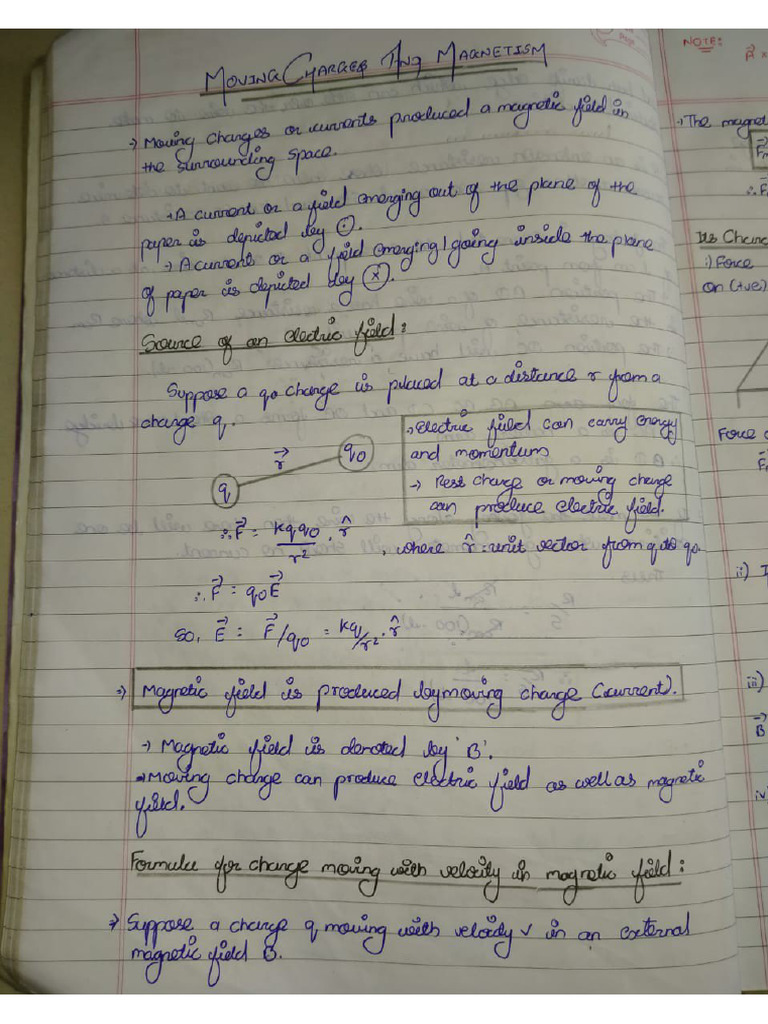 MOVING CHARGES AND MAGNETISM
→ Moving charges or currents produced a magnetic field in
the surrounding space.
→ A current or a field emerging out of the plane of the
paper is depicted by ⊙.
→ A current or a field emerging/going inside the plane
of paper is depicted by ⊗.
Source of an electric field:
Suppose a q0 charge is placed at a distance r from a
charge q.
→ Electric field can carry energy
and momentum
→ Rest charge or moving charge
can produce electric field.
r⃗
q q0
∴ F⃗ = kqq0/r² . r̂ , where r̂ = unit vector from q to q0.
∴ F⃗ = q0E⃗
So, E⃗ = F⃗/q0 = kq/r² . r̂
⇒ Magnetic field is produced by moving charge (current).
→ Magnetic field is denoted by 'B'.
→ Moving charge can produce electric field as well as magnetic
field.
Formula for charge moving with velocity in magnetic field:
⇒ Suppose a charge q moving with velocity v in an external
magnetic field B.
NOTE:
→ The magnet
i) Force
on (+ve)
Force
ii)
iii)
B⃗
iv)